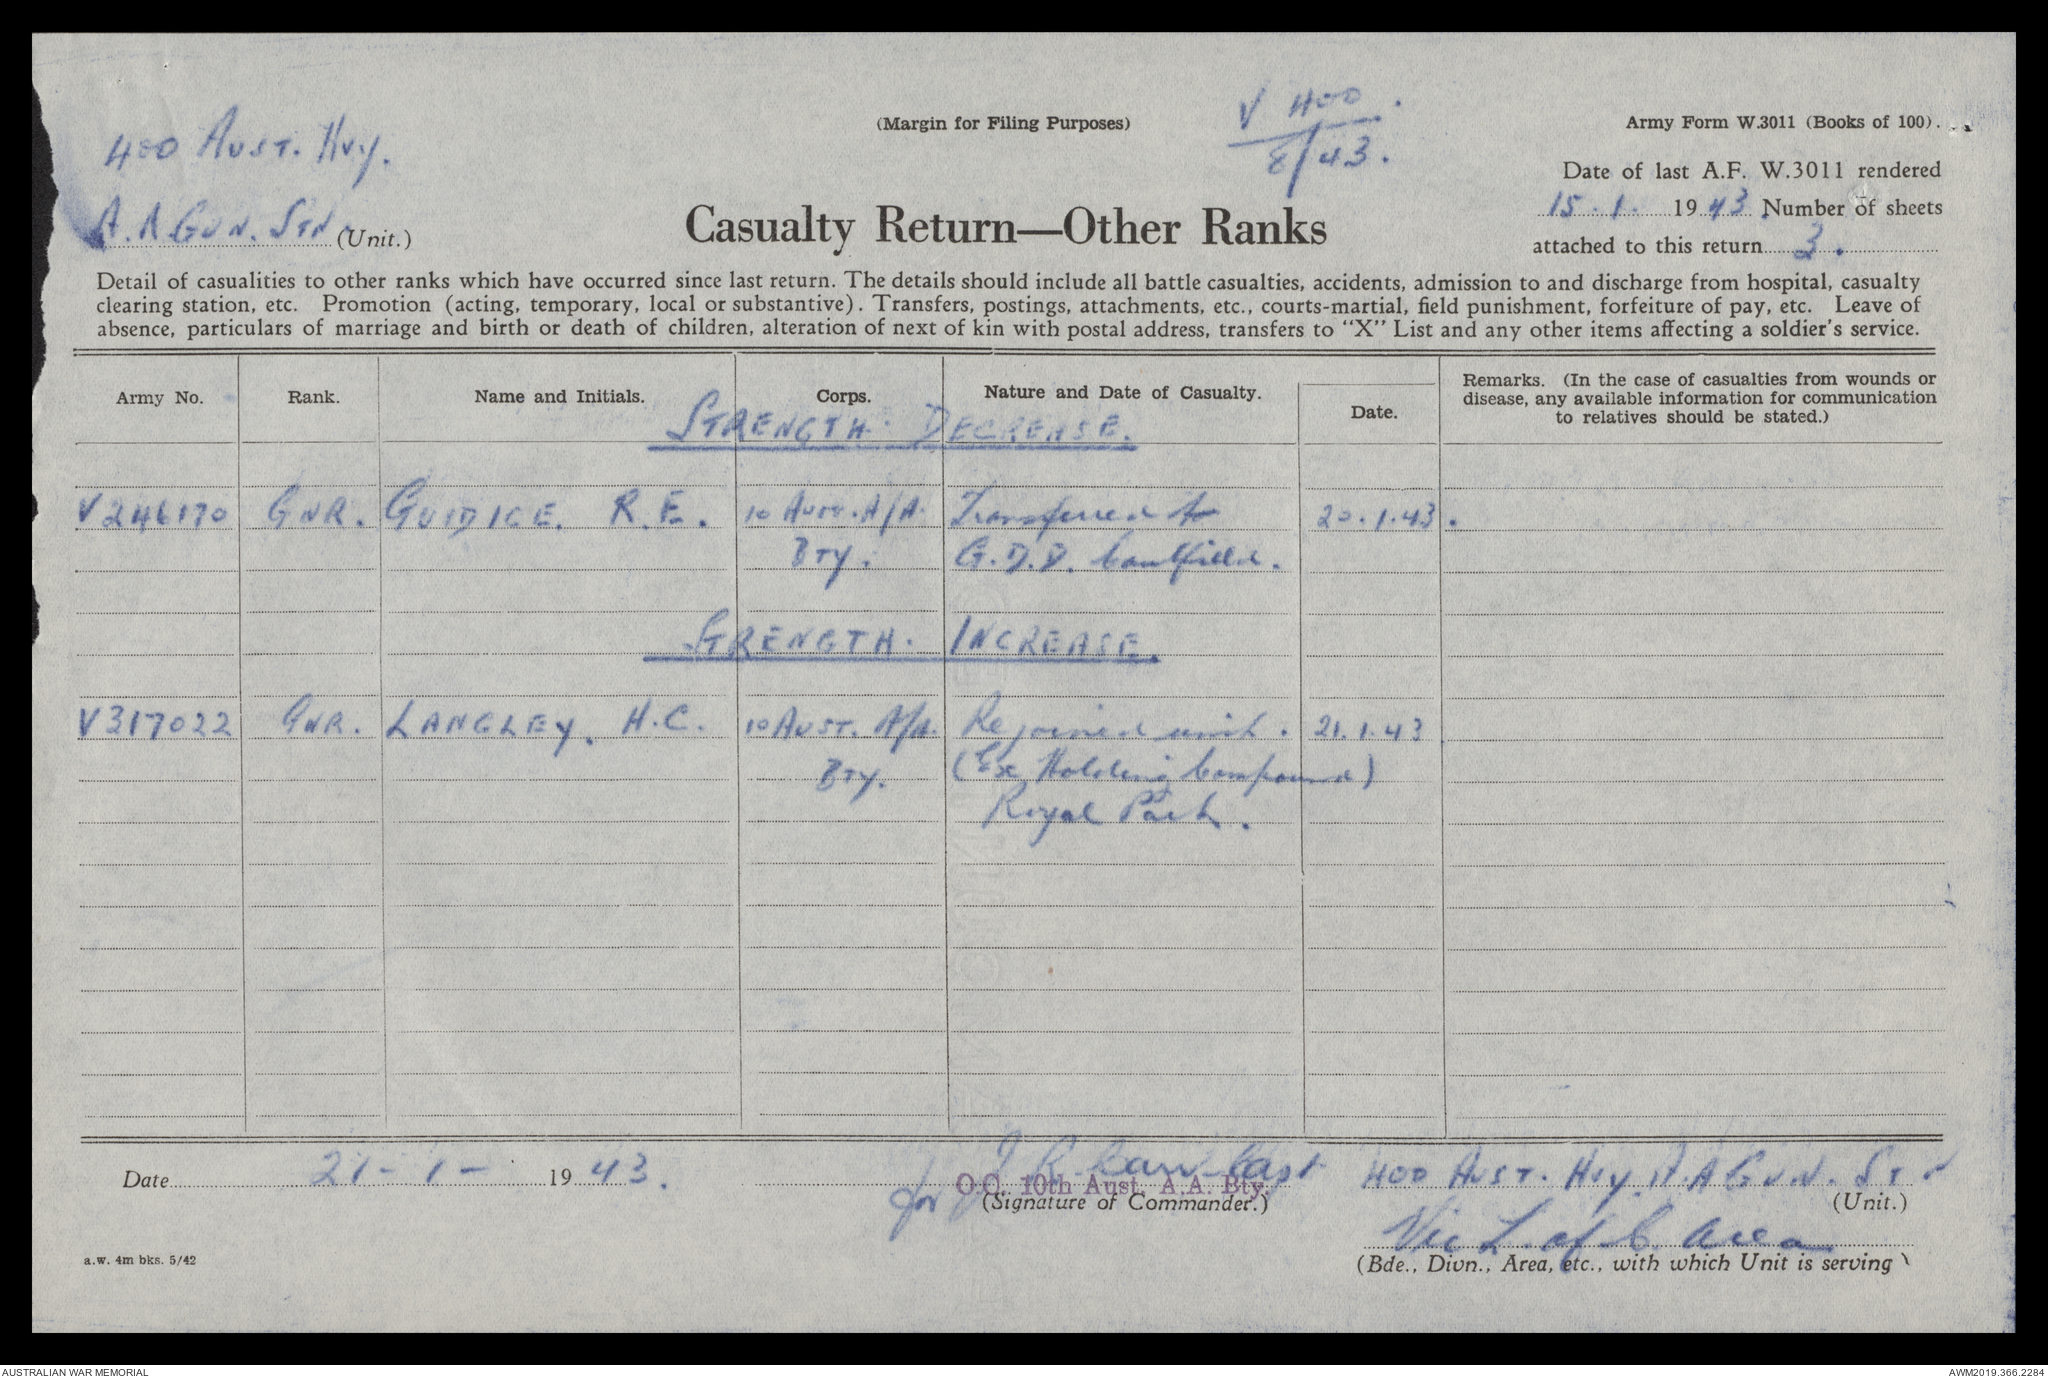 400 AUST. HVY.
A.A GUN. STN. (Unit.)
(Margin for Filing Purposes)
V 400
8/43.
Army Form W.3011 (Books of 100).
Date of last A.F. W.3011 rendered
15.1. 1943 Number of sheets
attached to this return 3.
Casualty Return—Other Ranks
Detail of casualities to other ranks which have occurred since last return. The details should include all battle casualties, accidents, admission to and discharge from hospital, casualty
clearing station, etc. Promotion (acting, temporary, local or substantive). Transfers, postings, attachments, etc., courts-martial, field punishment, forfeiture of pay, etc. Leave of
absence, particulars of marriage and birth or death of children, alteration of next of kin with postal address, transfers to "X" List and any other items affecting a soldier's service.
Army No. Rank. Name and Initials. Corps. Nature and Date of Casualty. Date. Remarks. (In the case of casualties from wounds or
disease, any available information for communication
to relatives should be stated.)
STRENGTH. DECREASE.
V246170 GNR. GUIDICE. R.E. 10 Aust. A/A. Transferred to 20.1.43.
BTY. G.D.D. Caulfield.
STRENGTH. INCREASE.
V317022 GNR. LANGLEY. H.C. 10 AUST. A/A. Rejoined unit. 21.1.43
BTY. (Ex Holding Compound)
Royal Park.
Date 21-1- 1943.
for O.C. 10th Aust. A.A. Bty. Capt
(Signature of Commander.)
400 AUST. HVY. A.A GUN. STN
(Unit.)
Vic L. of C. Area
(Bde., Divn., Area, etc., with which Unit is serving)
a.w. 4m bks. 5/42
AUSTRALIAN WAR MEMORIAL
AWM2019.366.2284